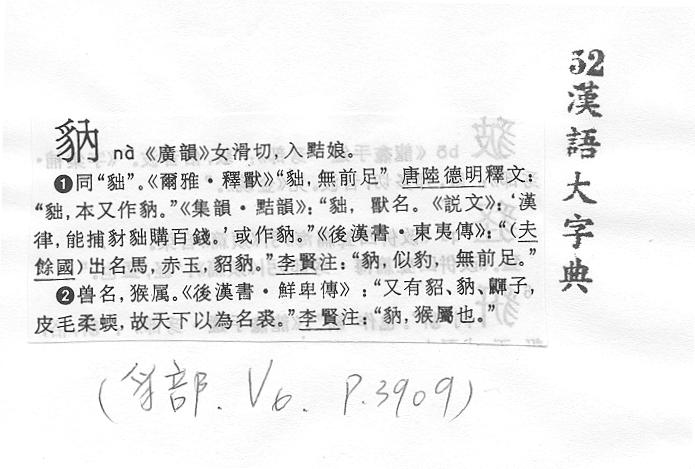 52漢語大字典
豽 nà《廣韻》女滑切，入黠娘。
❶同“貀”。《爾雅·釋獸》“貀，無前足” 唐陸德明釋文：
“貀，本又作豽。”《集韻·黠韻》：“貀，獸名。《説文》：‘漢
律，能捕豺貀購百錢。’或作豽。”《後漢書·東夷傳》：“（夫
餘國）出名馬，赤玉，貂豽。”李賢注：“豽，似豹，無前足。”
❷兽名，猴属。《後漢書·鮮卑傳》：“又有貂、豽、鼲子，
皮毛柔蝡，故天下以為名裘。”李賢注：“豽，猴屬也。”
(豸部. V6. P.3909)